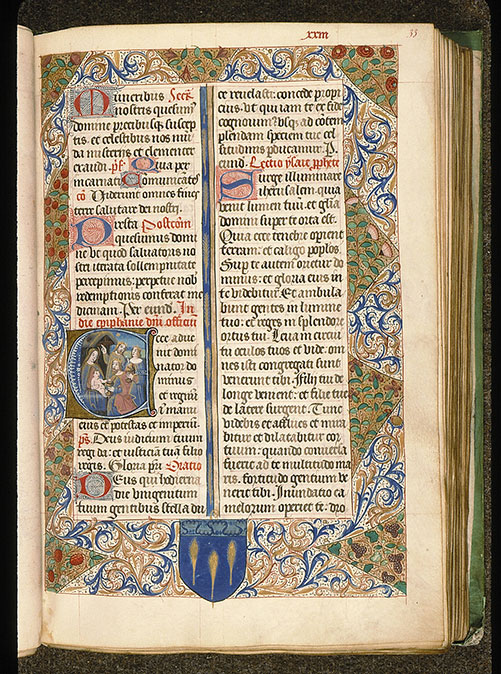 xxiii
33
Muneribus Secr̃
nostris quesum̃
domine precibusq̃ suscep
tis: et celestibus nos mũ
da misteriis et clementer
exaudi. p̃f. Quia per
incarnati Comunicatẽ
cõ Viderunt omnes fines
terre salutare dei nostri.
Presta Postcom̃
quesumus domi
ne vt quod saluatoris no
stri iterata sollempnitate
percepimus: perpetue nob̃
redemptionis conferat me
dicinam. Per eund̃. In
die epiphanie dñi officiũ
Ecce adue
nit domi
nator do
minus
et regnũ
ĩ manu
eius et potestas et imperiũ.
p̃s. Deus iudicium tuum
regi da: et iusticiã tuã filio
regis. Gloria p̃ri Oratio
Deus qui hodierna
die vnigenitum
tuum gentibus stella du
ce reuelasti: concede propici
cius vt qui iam te ex fide
cognouim̃ vsq̃ ad cõtem
plandam speciem tue cel
situdinis p̃ducamur. P.
eund̃. Lectio ysaie p̃phete
Surge illuminare
iherusalem quia
venit lumen tuũ: et gl̃ia
domini super te orta est.
Quia ecce tenebre operient
terram: et caligo populos.
Sup̃ te autem orietur do
minus: et gloria eius in
te videbitur. Et ambula
bunt gentes in lumine
tuo: et reges in splendore
ortus tui. Leua in circui
tu oculos tuos et vide: om
nes isti congregati sunt
venerunt tibi. Filii tui de
longe venient: et filie tue
de latere surgent. Tunc
videbis et afflues et mira
bitur et dilatabitur cor
tuum: quando conuersa
fuerit ad te multitudo ma
ris. fortitudo gentium ve
nerit tibi. Inundatio ca
melorum operiet te: dro